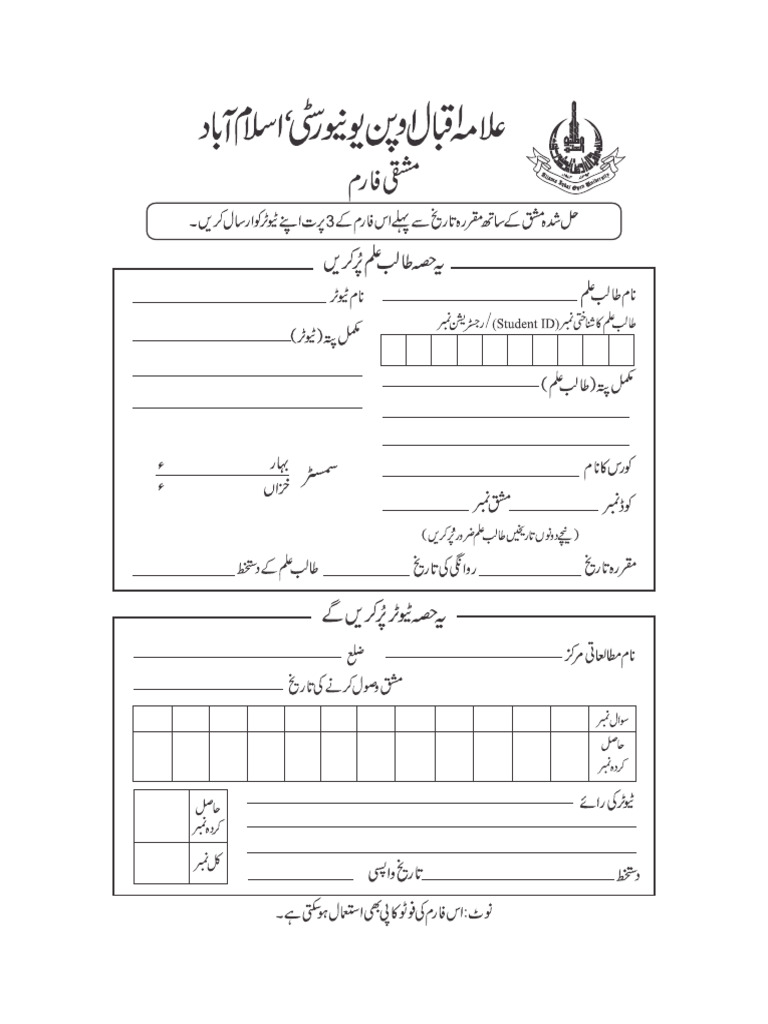 علامہ اقبال اوپن یونیورسٹی، اسلام آباد
Allama Iqbal Open University
مشقی فارم
حل شدہ مشق کے ساتھ مقررہ تاریخ سے پہلے اس فارم کے 3 پرت اپنے ٹیوٹر کو ارسال کریں۔
یہ حصہ طالب علم پُر کریں
نام طالب علم
نام ٹیوٹر
طالب علم کا شناختی نمبر (Student ID) / رجسٹریشن نمبر
مکمل پتہ (ٹیوٹر)
مکمل پتہ (طالب علم)
کورس کا نام
سمسٹر
بہار ء
خزاں ء
کوڈ نمبر مشق نمبر
(نیچے دونوں تاریخیں طالب علم ضرور پُر کریں)
مقررہ تاریخ روانگی کی تاریخ طالب علم کے دستخط
یہ حصہ ٹیوٹر پُر کریں گے
نام مطالعاتی مرکز ضلع
مشق وصول کرنے کی تاریخ
سوال نمبر
حاصل
کردہ نمبر
ٹیوٹر کی رائے
حاصل
کردہ نمبر
کل نمبر
دستخط تاریخ واپسی
نوٹ: اس فارم کی فوٹو کاپی بھی استعمال ہو سکتی ہے۔